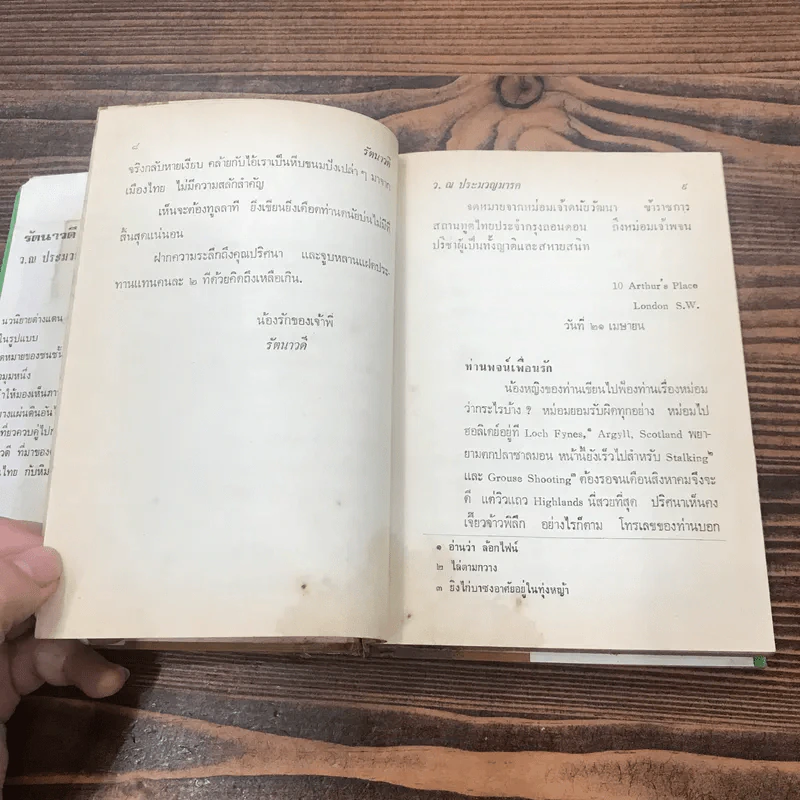 รัตนาวดี
ว.ณ ประมว
นวนิยายต่างแดน
ในรูปแบบ
ดหมายของชนชั้น
มุมหนึ่ง
ให้มองเห็นภา
างแผ่นดินอัน
เที่ยวควบคู่ไป
วดี ที่มาของ
ไทย กับหิม
๘ รัตนาวดี
จริงกลับหายเงียบ คล้ายกับไอ้เราเป็นหีบขนมปังเปล่า ๆ มาจาก
เมืองไทย ไม่มีความสลักสำคัญ
เห็นจะต้องทูลลาที ยิ่งเขียนยิ่งเดือดท่านดนัยบ่นไม่มีที่
สิ้นสุดแน่นอน
ฝากความระลึกถึงคุณปริศนา และจูบหลานแฝดประ-
ทานแทนคนละ ๒ ทีด้วยคิดถึงเหลือเกิน.
น้องรักของเจ้าพี่
รัตนาวดี
ว. ณ ประมวญมารค ๙
จดหมายจากหม่อมเจ้าดนัยวัฒนา ข้าราชการ
สถานทูตไทยประจำกรุงลอนดอน ถึงหม่อมเจ้าพจน
ปรีชาผู้เป็นทั้งญาติและสหายสนิท
10 Arthur's Place
London S.W.
วันที่ ๒๑ เมษายน
ท่านพจน์เพื่อนรัก
น้องหญิงของท่านเขียนไปฟ้องท่านเรื่องหม่อม
ว่ากระไรบ้าง ? หม่อมยอมรับผิดทุกอย่าง หม่อมไป
ฮอลิเดย์อยู่ที่ Loch Fynes,๑ Argyll, Scotland พยา-
ยามตกปลาซาลมอน หน้านี้ยังเร็วไปสำหรับ Stalking๒
และ Grouse Shooting๓ ต้องรอจนเดือนสิงหาคมจึงจะ
ดี แต่วิวแถว Highlands นี่สวยที่สุด ปริศนาเห็นคง
เจี๊ยวจ๊าวพิลึก อย่างไรก็ตาม โทรเลขของท่านบอก
๑ อ่านว่า ล็อกไฟน์
๒ ไล่ตามกวาง
๓ ยิงไก่บาซงอาศัยอยู่ในทุ่งหญ้า